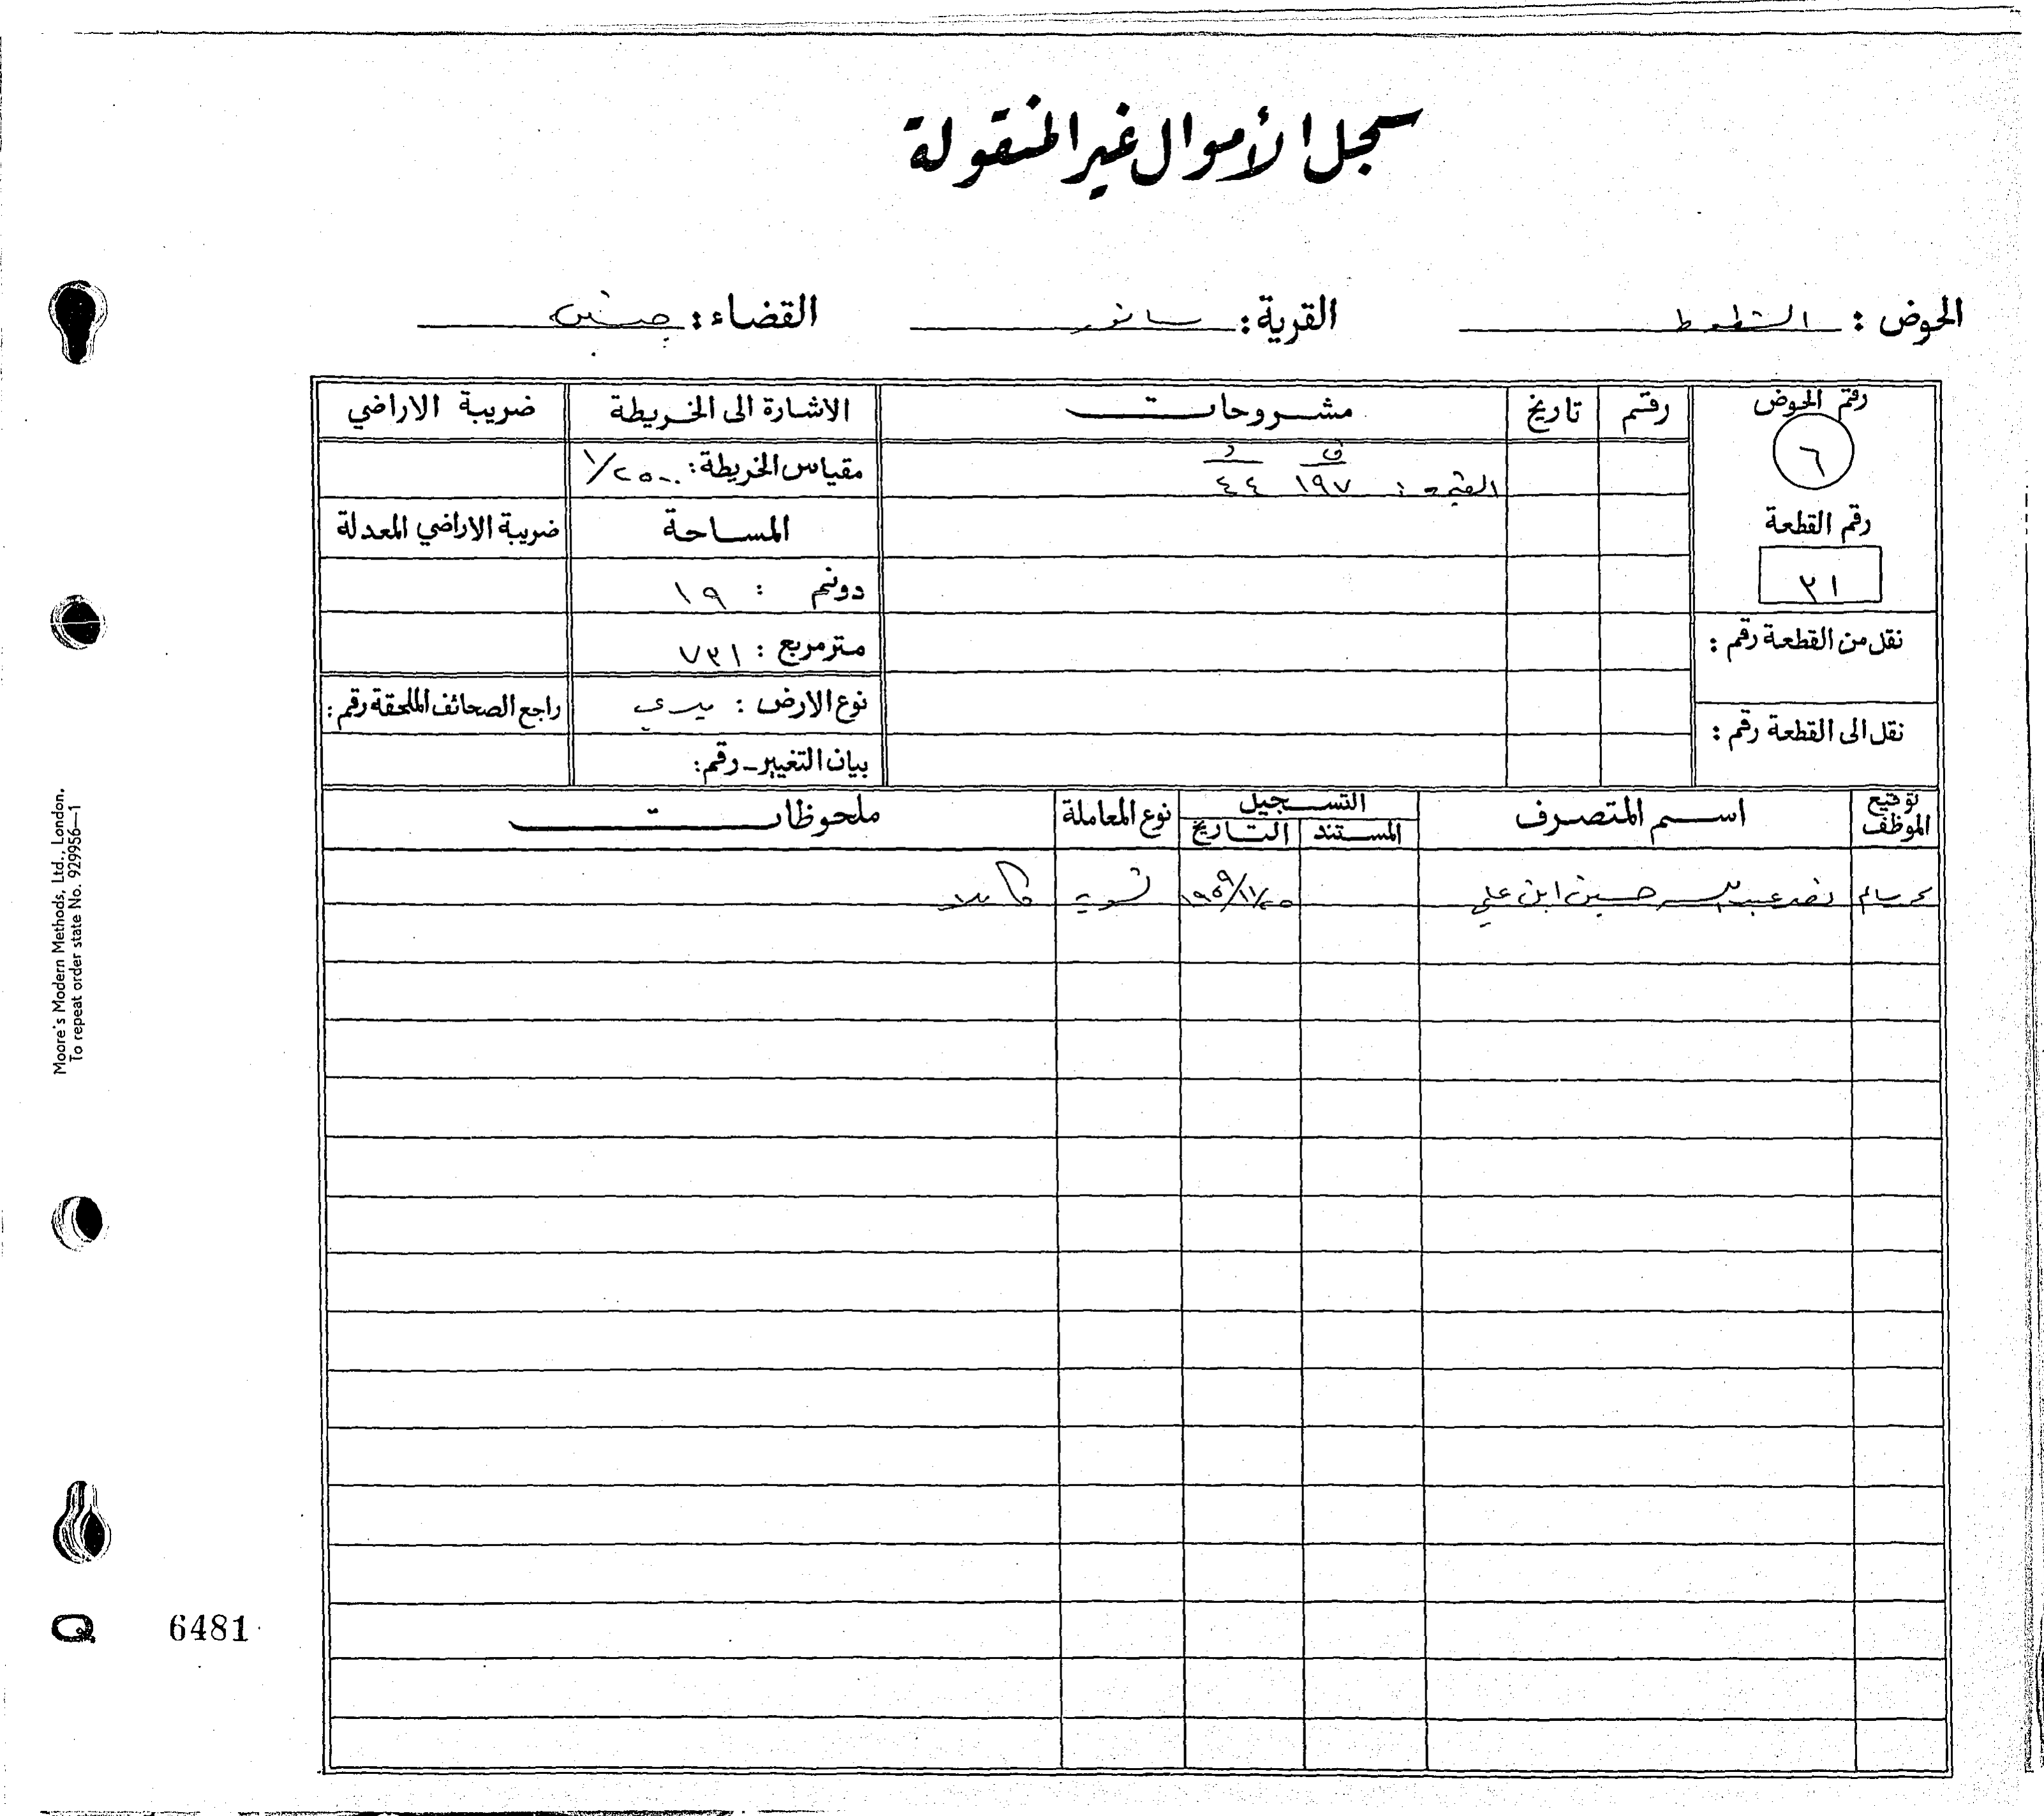 سجل الأموال غير المنقولة
الحوض : الشطوط القرية : سانور القضاء : جنين
رقم الحوض رقم تاريخ مشروحات الاشارة الى الخريطة ضريبة الاراضي
٦ ف د مقياس الخريطة : ١/٢٥٠٠
القيمة : ١٩٧ ٤٤
رقم القطعة المساحة ضريبة الاراضي المعدلة
٣١ دونم : ١٩
نقل من القطعة رقم : متر مربع : ٧٣١
نوع الارض : ميري راجع الصحائف الملحقة رقم :
نقل الى القطعة رقم : بيان التغيير - رقم :
توقيع الموظف اسم المتصرف التسجيل نوع المعاملة ملحوظات
المستند التاريخ
عبد الله حسين ابن علي تسوية كاملا
Moore's Modern Methods, Ltd., London.
To repeat order state No. 929956—1
Q 6481